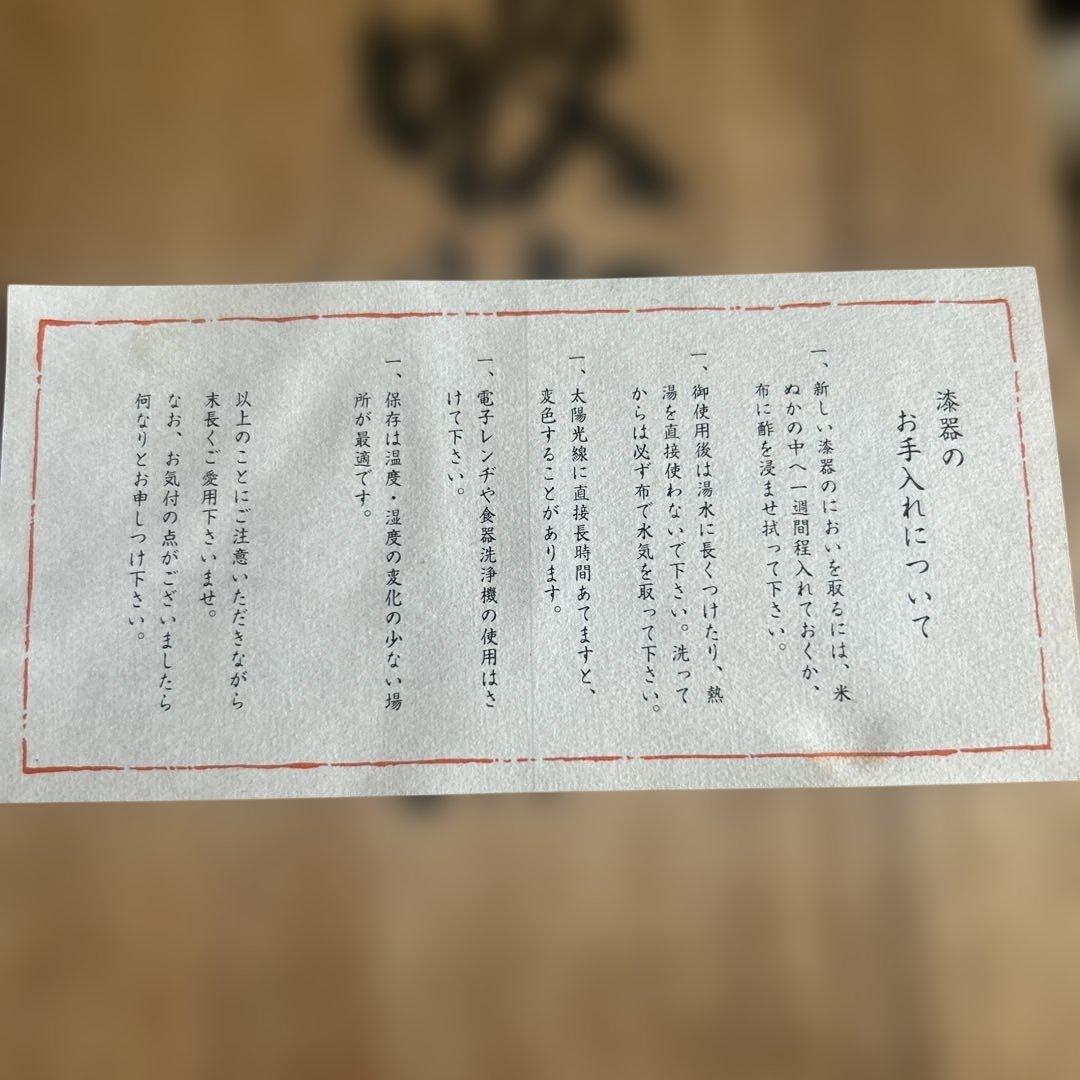 漆器の
お手入れについて
一、新しい漆器のにおいを取るには、米
ぬかの中へ一週間程入れておくか、
布に酢を浸ませ拭って下さい。
一、御使用後は湯水に長くつけたり、熱
湯を直接使わないで下さい。洗って
からは必ず布で水気を取って下さい。
一、太陽光線に直接長時間あてますと、
変色することがあります。
一、電子レンヂや食器洗浄機の使用はさ
けて下さい。
一、保存は温度・湿度の変化の少ない場
所が最適です。
以上のことにご注意いただきながら
末長くご愛用下さいませ。
なお、お気付の点がございましたら
何なりとお申しつけ下さい。